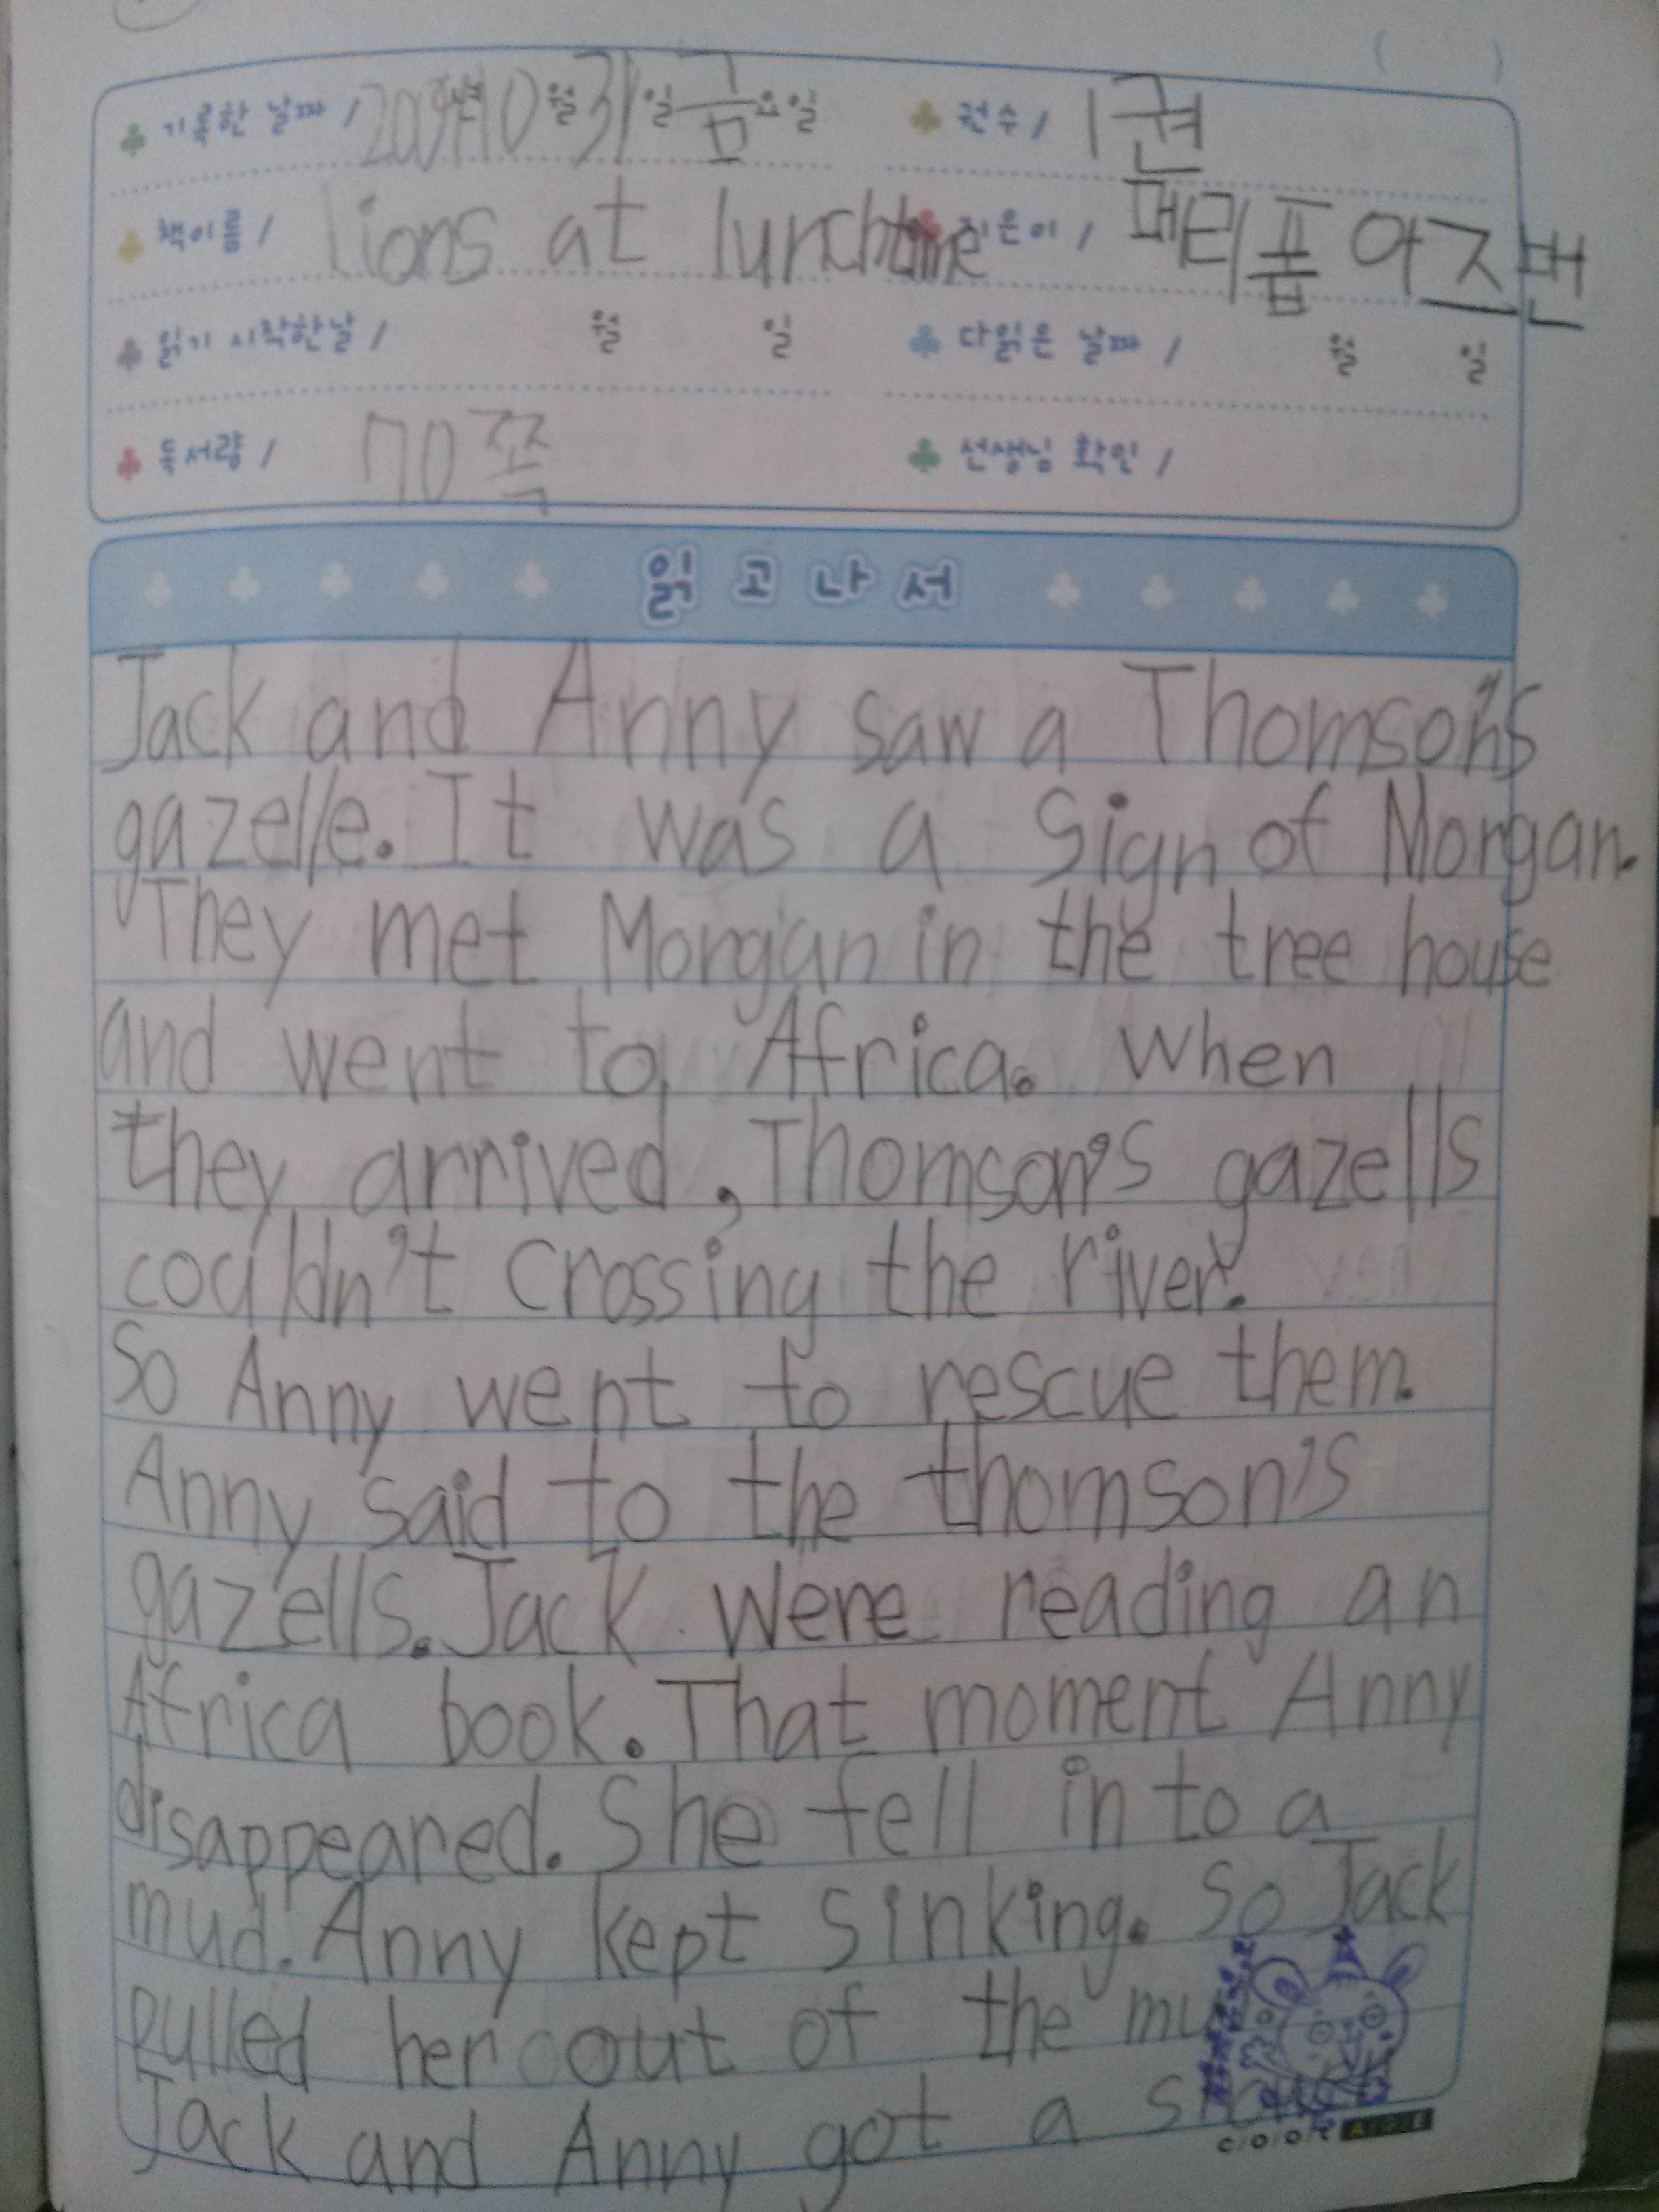 기록한 날짜 / 년 10 월 31 일 금 요일 권수 / 1권
책이름 / lions at lunchtime 지은이 / 메리폽 아즈번
읽기 시작한날 / 월 일 다읽은 날짜 / 월 일
독서량 / 70쪽 선생님 확인 /
읽고나서
Jack and Anny saw a Thomson's
gazelle. It was a sign of Morgan.
They met Morgan in the tree house
and went to Africa. When
they arrived, Thomson's gazells
couldn't crossing the river.
So Anny went to rescue them.
Anny said to the thomson's
gazells. Jack were reading an
Africa book. That moment Anny
disappeared. She fell in to a
mud. Anny kept sinking. So Jack
pulled her out of the
Jack and Anny got a
COOL